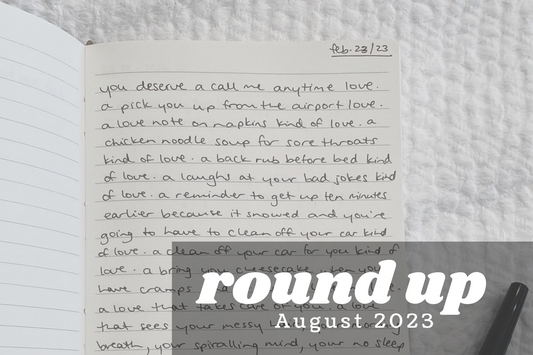 feb. 23/23
you deserve a call me anytime love.
a pick you up from the airport love.
a love note on napkins kind of love. a
chicken noodle soup for sore throats
kind of love. a back rub before bed kind
of love. a laughs at your bad jokes kind
of love. a reminder to get up ten minutes
earlier because it snowed and you're
going to have to clean off your car kind
of love. a clean off your car for you kind of
love. a bring you cheesecake when you
have cramps
a love that takes care of you. a love
that sees your messy morning
breath, your spiralling mind, your no sleep
round up
August 2023